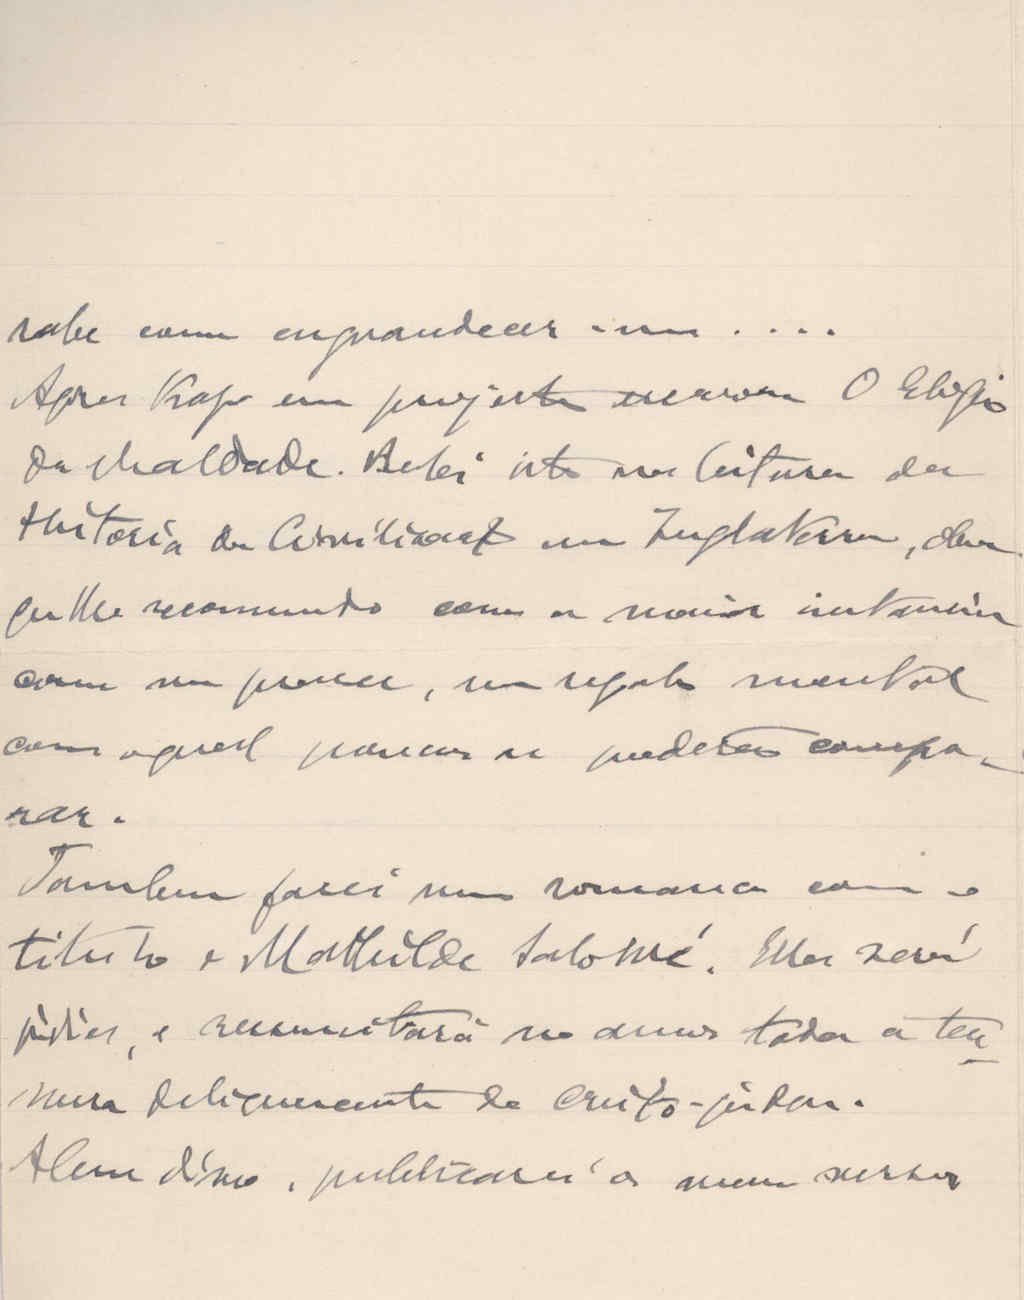 sabe como engrandecer-me....
Agora trago em projecto escrever O Elogio
da Maldade. Bebi isto na leitura da
Historia da Civilização em Inglaterra, obra
que lhe recommendo com a maior instancia
como um prazer, um regalo mental
com o qual poucos se poderão compa-
rar.
Tambem farei um romance com o
titulo e Mathilde Salomé. Ella será
judia, e resuscitará no amor toda a ter-
nura deliquescente de Cristo-judeu.
Alem disso, publicarei os meus versos